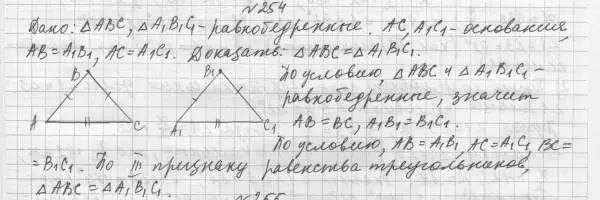 №254
Дано: △ABC, △A₁B₁C₁ - равнобедренные. AC, A₁C₁ - основания,
AB = A₁B₁, AC = A₁C₁. Доказать: △ABC = △A₁B₁C₁.
B B₁ По условию, △ABC и △A₁B₁C₁ -
равнобедренные, значит
A C A₁ C₁ AB = BC, A₁B₁ = B₁C₁.
По условию, AB = A₁B₁, AC = A₁C₁, BC =
= B₁C₁. По III признаку равенства треугольников,
△ABC = △A₁B₁C₁.
№255